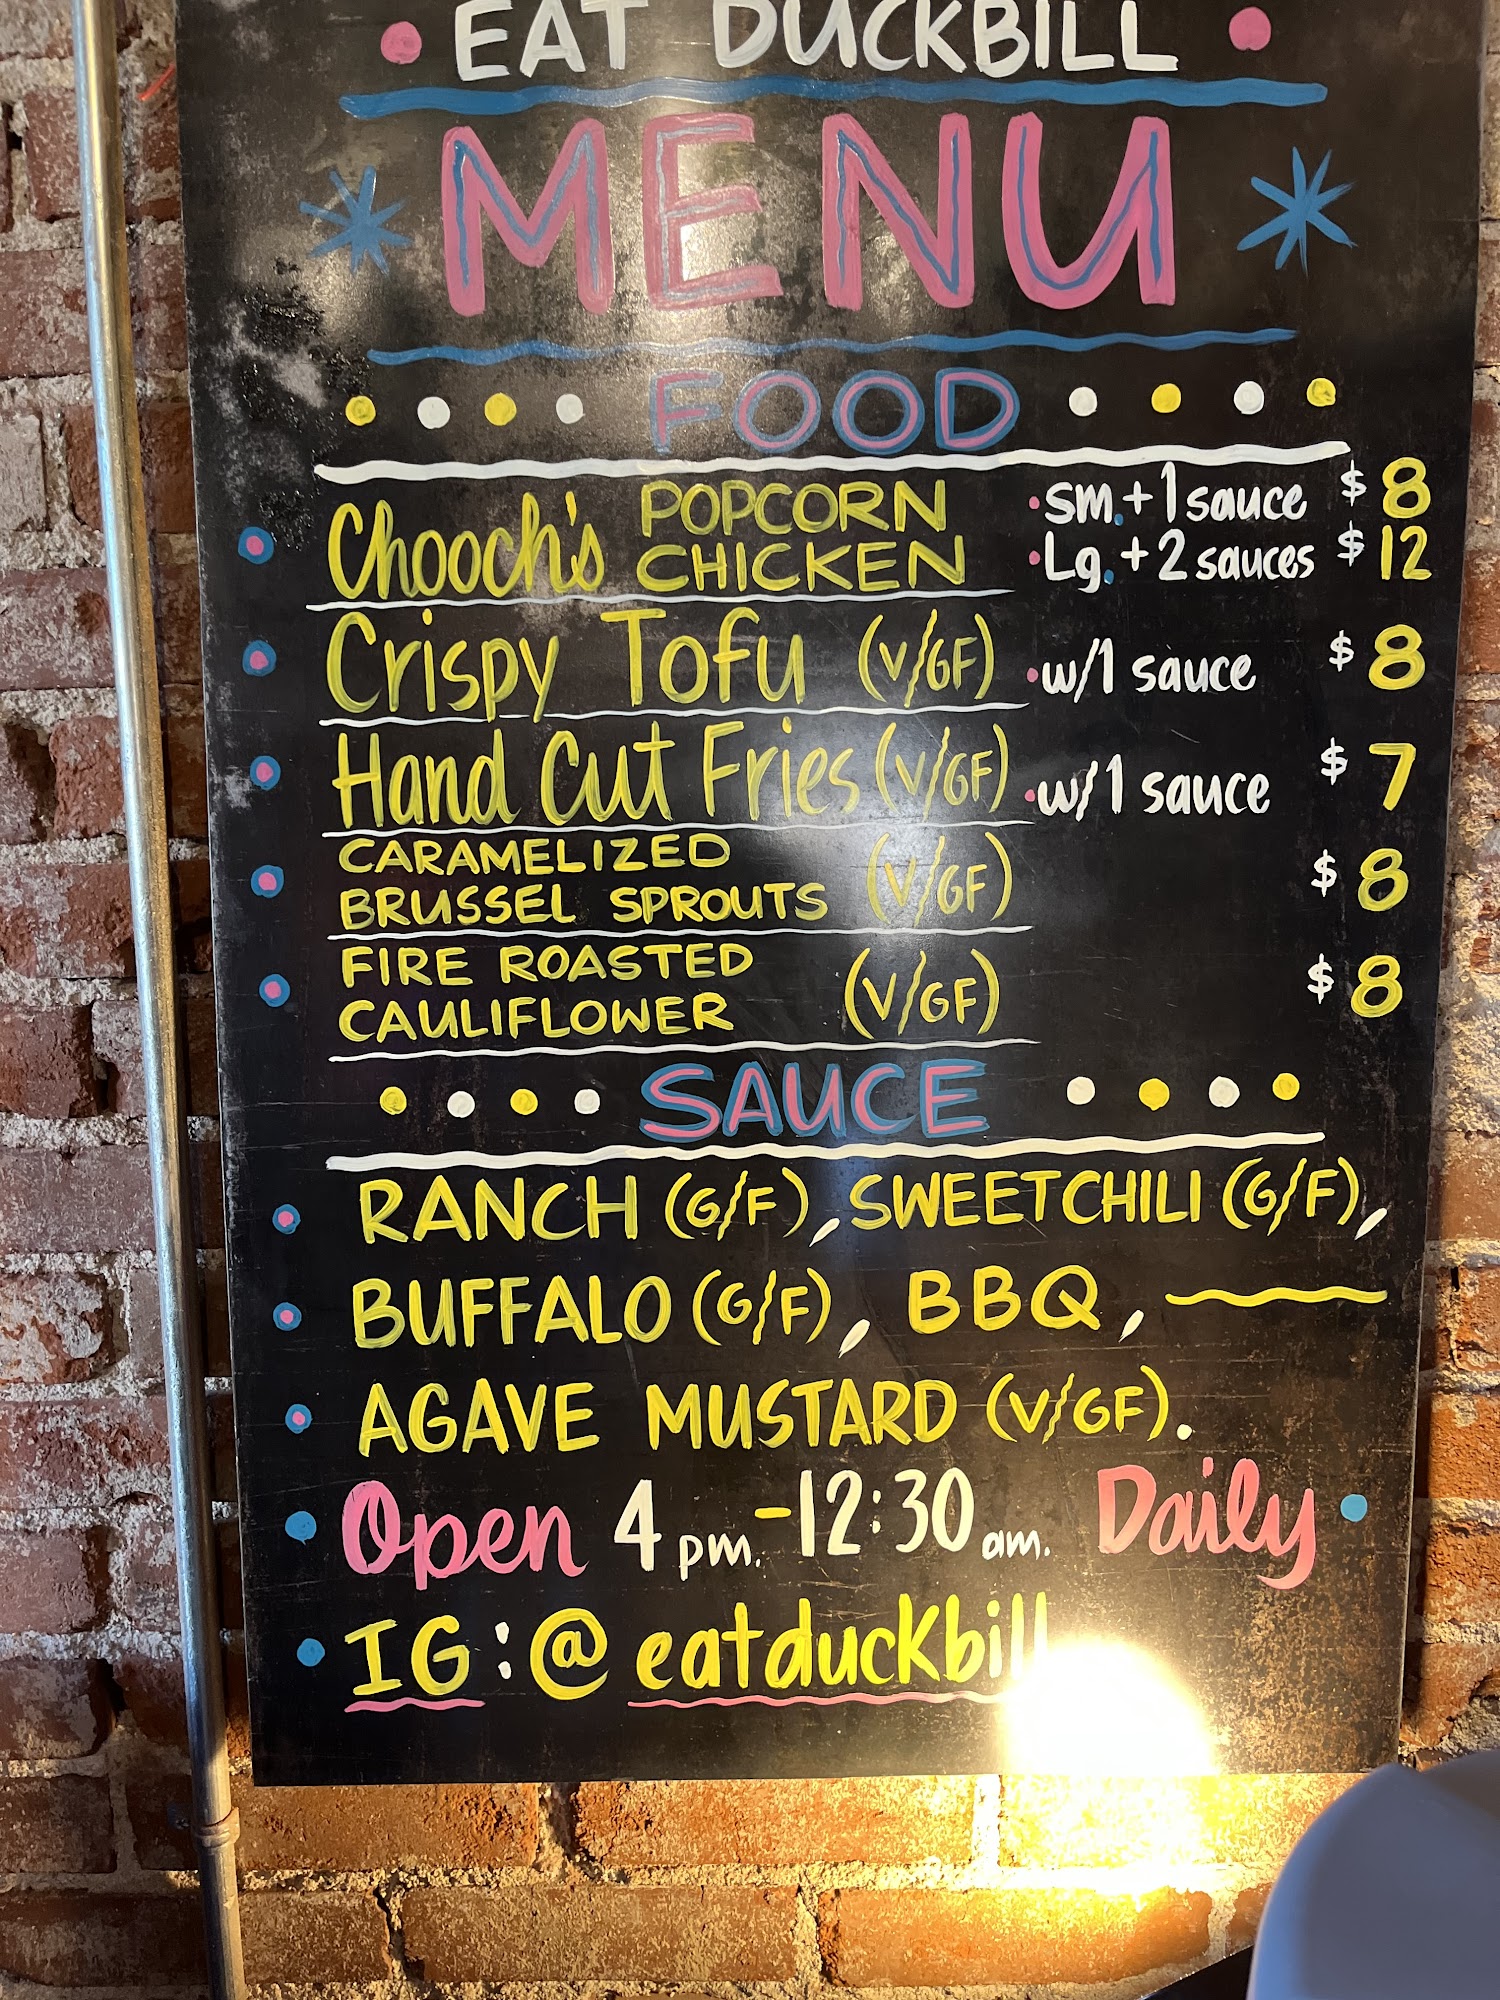 EAT DUCKBILL
MENU
FOOD
Chooch's POPCORN CHICKEN
• sm. + 1 sauce $8
• Lg. + 2 sauces $12
Crispy Tofu (V/GF) • w/1 sauce $8
Hand Cut Fries (V/GF) • w/1 sauce $7
CARAMELIZED
BRUSSEL SPROUTS (V/GF) $8
FIRE ROASTED
CAULIFLOWER (V/GF) $8
SAUCE
RANCH (G/F), SWEET CHILI (G/F),
BUFFALO (G/F), BBQ,
AGAVE MUSTARD (V/GF).
Open 4pm.-12:30am. Daily
IG: @eatduckbill